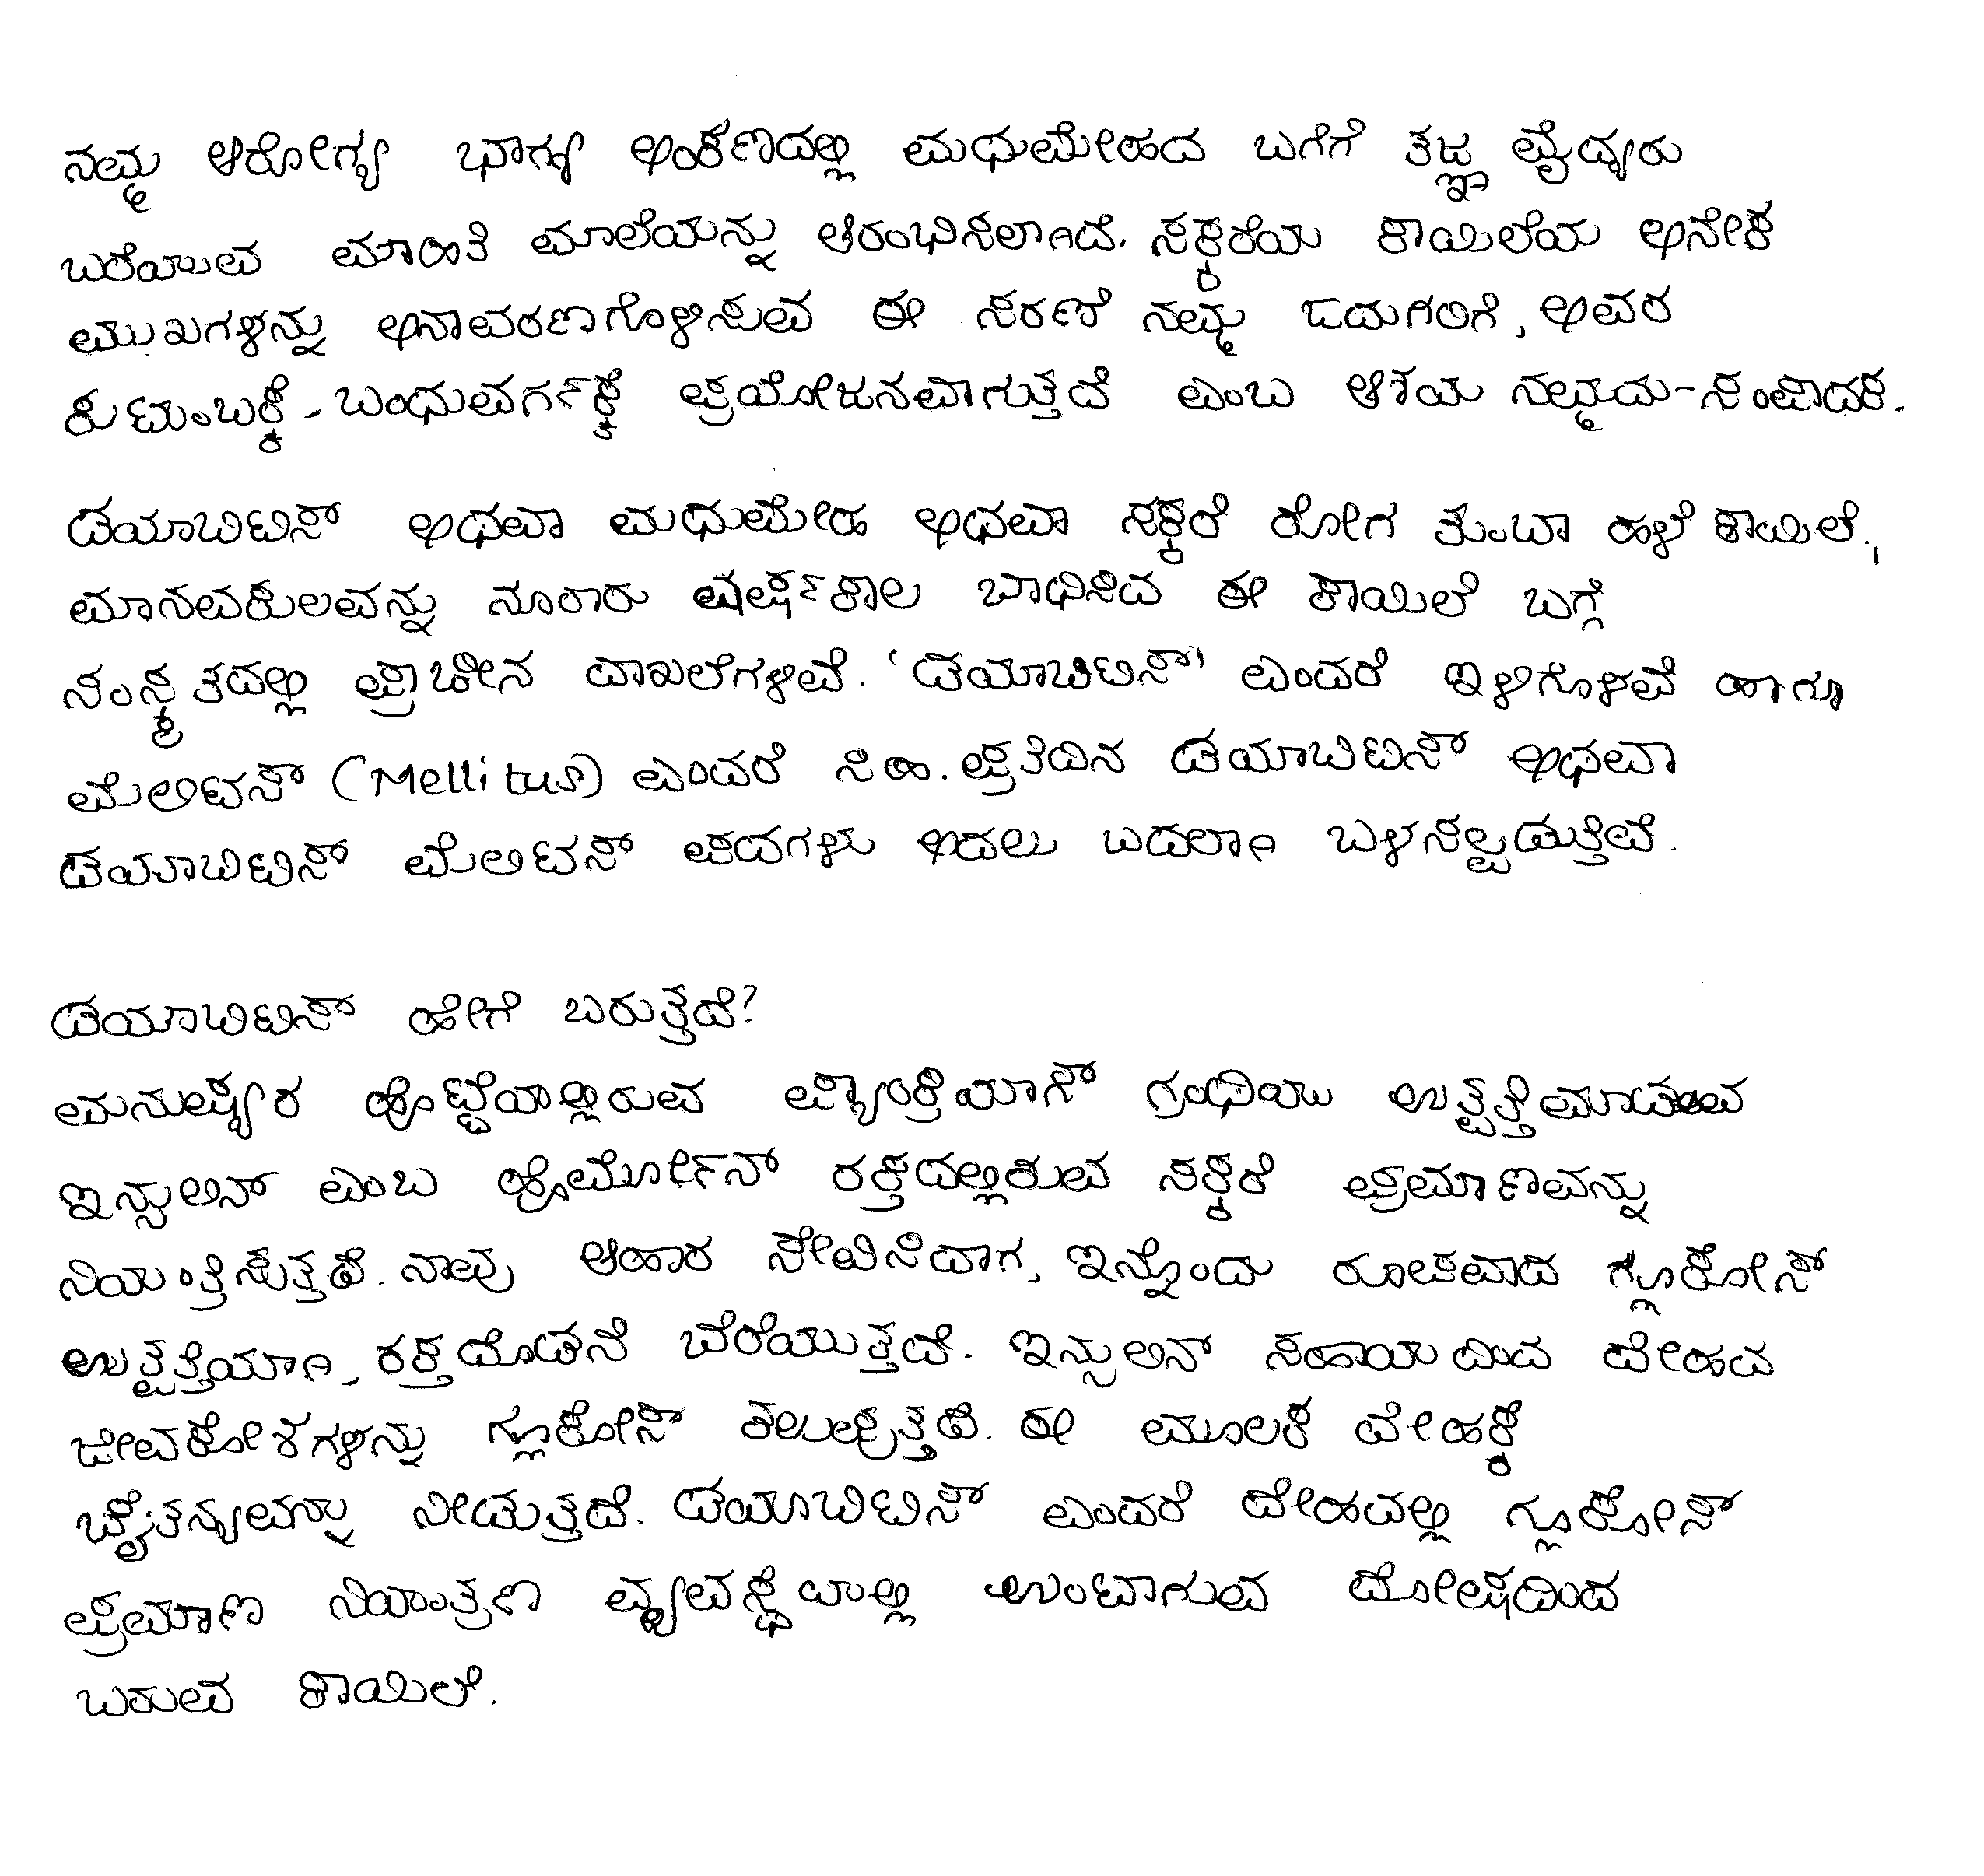 ನಮ್ಮ ಆರೋಗ್ಯ ಭಾಗ್ಯ ಅಂಕಣದಲ್ಲಿ ಮಧುಮೇಹದ ಬಗೆಗೆ ತಜ್ಞ ವೈದ್ಯರು
ಬರೆಯುವ ಮಾಹಿತಿ ಮಾಲೆಯನ್ನು ಆರಂಭಿಸಲಾಗಿದೆ. ಸಕ್ಕರೆಯ ಕಾಯಿಲೆಯ ಅನೇಕ
ಮುಖಗಳನ್ನು ಅನಾವರಣಗೊಳಿಸುವ ಈ ಸರಣಿ ನಮ್ಮ ಓದುಗರಿಗೆ, ಅವರ
ಕುಟುಂಬಕ್ಕೆ-ಬಂಧುವರ್ಗಕ್ಕೆ ಪ್ರಯೋಜನವಾಗುತ್ತದೆ ಎಂಬ ಆಶಯ ನಮ್ಮದು-ಸಂಪಾದಕ.
ಡಯಾಬಿಟಿಸ್ ಅಥವಾ ಮಧುಮೇಹ ಅಥವಾ ಸಕ್ಕರೆ ರೋಗ ತುಂಬಾ ಹಳೆ ಕಾಯಿಲೆ.,
ಮಾನವಕುಲವನ್ನು ನೂರಾರು ವರ್ಷಕಾಲ ಬಾಧಿಸಿದ ಈ ಕಾಯಿಲೆ ಬಗ್ಗೆ
ಸಂಸ್ಕೃತದಲ್ಲಿ ಪ್ರಾಚೀನ ದಾಖಲೆಗಳಿವೆ. 'ಡಯಾಬಿಟಿಸ್' ಎಂದರೆ ಇಳಿಗೊಳವೆ ಹಾಗೂ
ಮೆಲಿಟಸ್ (Mellitus) ಎಂದರೆ ಸಿಹಿ. ಪ್ರತಿದಿನ ಡಯಾಬಿಟಿಸ್ ಅಥವಾ
ಡಯಾಬಿಟಿಸ್ ಮೆಲಿಟಸ್ ಪದಗಳು ಅದಲು ಬದಲಾಗಿ ಬಳಸಲ್ಪಡುತ್ತಿವೆ.
ಡಯಾಬಿಟಿಸ್ ಹೇಗೆ ಬರುತ್ತದೆ?
ಮನುಷ್ಯರ ಹೊಟ್ಟೆಯಲ್ಲಿರುವ ಪ್ಯಾಂಕ್ರಿಯಾಸ್ ಗ್ರಂಥಿಯು ಉತ್ಪತ್ತಿಮಾಡುವ
ಇನ್ಸುಲಿನ್ ಎಂಬ ಹೈರ್ಮೋನ್ ರಕ್ತದಲ್ಲಿರುವ ಸಕ್ಕರೆ ಪ್ರಮಾಣವನ್ನು
ನಿಯಂತ್ರಿಸುತ್ತದೆ. ನಾವು ಆಹಾರ ಸೇವಿಸಿದಾಗ, ಇನ್ನೊಂದು ರೂಪವಾದ ಗ್ಲೂಕೋಸ್
ಉತ್ಪತ್ತಿಯಾಗಿ, ರಕ್ತದೊಡನೆ ಬೆರೆಯುತ್ತದೆ. ಇನ್ಸುಲಿನ್ ಸಹಾಯದಿಂದ ದೇಹದ
ಜೀವಕೋಶಗಳನ್ನು ಗ್ಲೂಕೋಸ್ ತಲುಪುತ್ತದೆ. ಈ ಮೂಲಕ ದೇಹಕ್ಕೆ
ಚೈತನ್ಯವನ್ನು ನೀಡುತ್ತದೆ. ಡಯಾಬಿಟಿಸ್ ಎಂದರೆ ದೇಹದಲ್ಲಿ ಗ್ಲೂಕೋಸ್
ಪ್ರಮಾಣ ನಿಯಂತ್ರಣ ವ್ಯವಸ್ಥೆಯಲ್ಲಿ ಉಂಟಾಗುವ ದೋಷದಿಂದ
ಬರುವ ಕಾಯಿಲೆ.